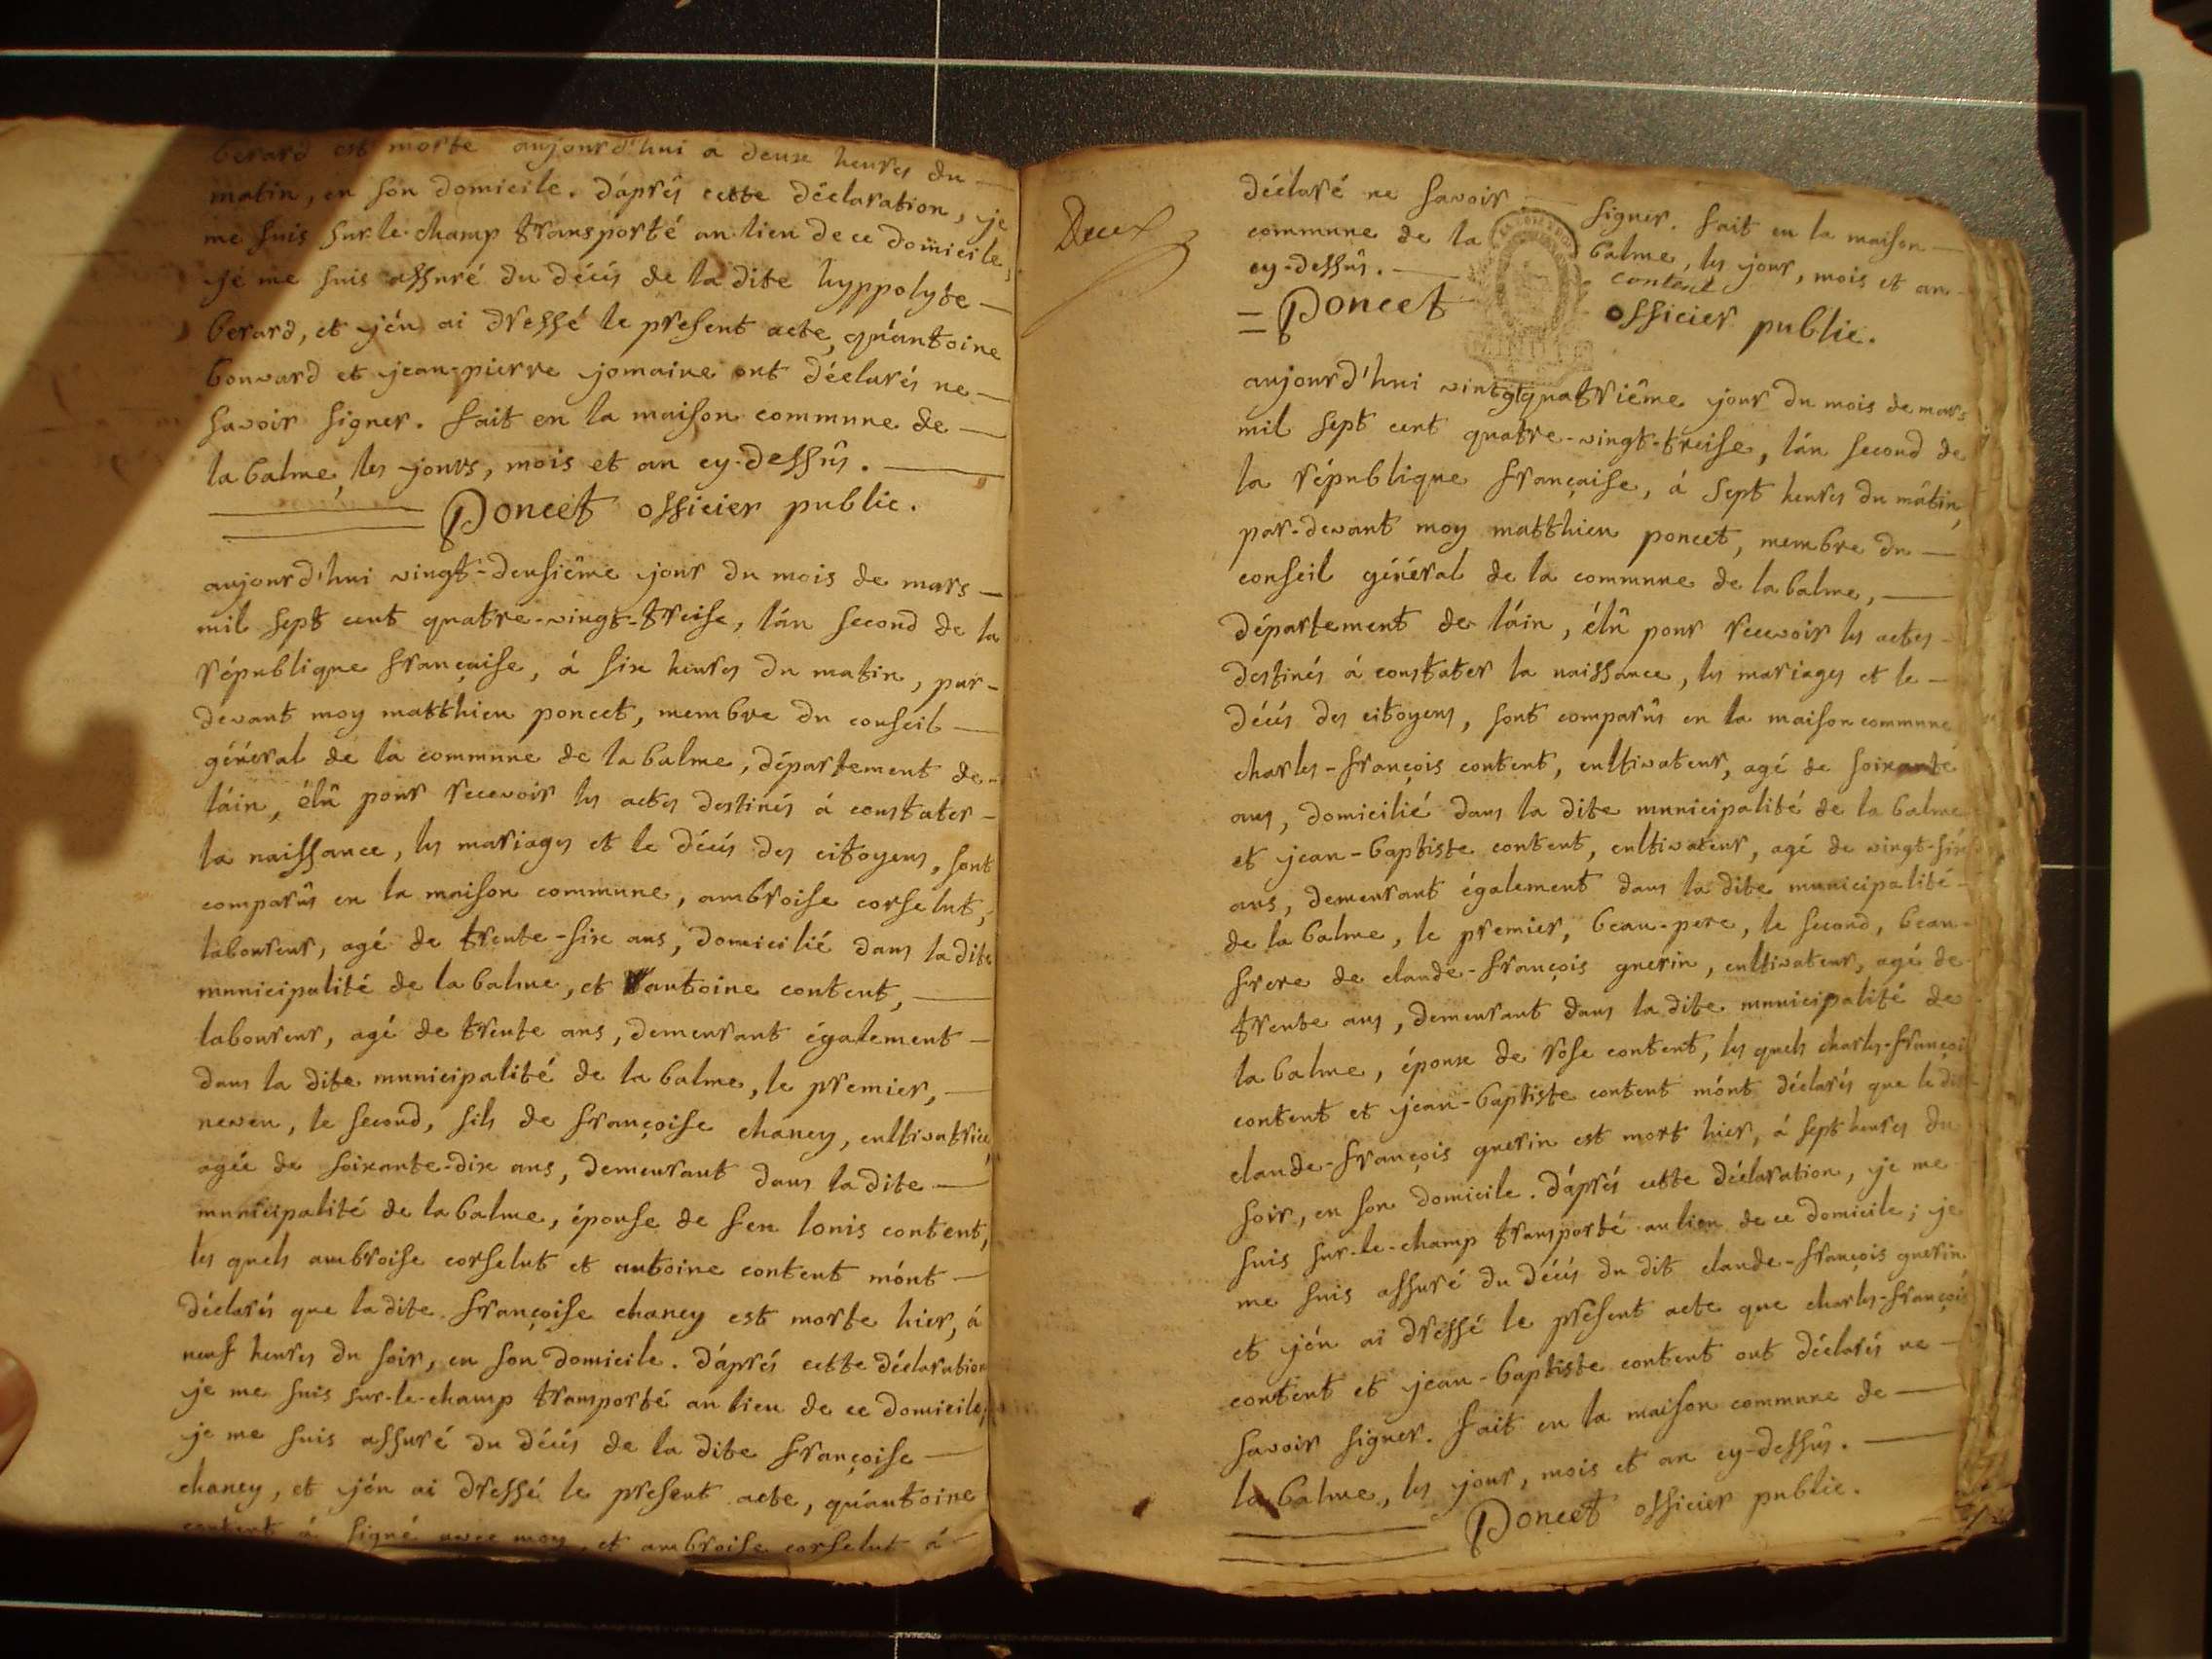 berard est morte aujourd'hui a deux heures du
matin, en son domicile. d'aprés cette déclaration, je
me suis sur-le-champ transporté au lieu de ce domicile,
je me suis assuré du décés de la dite hyppolyte
berard, et j'én ai dressé le present acte, qu'antoine
bonvard et jean-pierre jomaine ont déclarés ne
savoir signer. fait en la maison commune de
la balme, les jours, mois et an cy-dessûs.
Poncet officier public.
aujourd'hui vingt-deusiême jour du mois de mars
mil sept cent quatre-vingt-treise, l'án second de la
république française, á six heures du matin, par-
devant moy matthieu poncet, membre du conseil
général de la commune de la balme, département de
l'áin, élû pour recevoir les actes destinés á constater
la naissance, les mariages et le décés des citoyens, sont
comparûs en la maison commune, ambroise corselut,
laboureur, agé de trente-six ans, domicilié dans la dite
municipalité de la balme, et antoine content,
laboureur, agé de trente ans, demeurant également
dans la dite municipalité de la balme, le premier,
neveu, le second, fils de françoise chaney, cultivatrice,
agée de soixante-dix ans, demeurant dans la dite
municipalité de la balme, épouse de feu louis content,
les quels ambroise corselut et antoine content m'ónt
déclarés que la dite françoise chaney est morte hier, á
neuf heures du soir, en son domicile. d'áprés cette déclaration
je me suis sur-le-champ transporté au lieu de ce domicile,
je me suis assuré du décés de la dite françoise
chaney, et j'én ai dressé le present acte, qu'antoine
content á signé avec moy, et ambroise corselut á
Deux
déclaré ne savoir signer. fait en la maison
commune de la balme, les jour, mois et an
cy-dessûs. content
Poncet officier public.
aujourd'hui vingt quatriême jour du mois de mars
mil sept cent quatre-vingt-treise, l'án second de
la république française, á sept heures du mátin,
par-devant moy matthieu poncet, membre du
conseil général de la commune de la balme,
département de l'áin, élû pour recevoir les actes
destinés á constater la naissance, les mariages et le
décés des citoyens, sont comparûs en la maison commune
charles-françois content, cultivateur, agé de soixante
ans, domicilié dans la dite municipalité de la balme
et jean-baptiste content, cultivateur, agé de vingt-six
ans, demeurant également dans la dite municipalité
de la balme, le premier, beau-pere, le second, beau-
frere de claude-françois guerin, cultivateur, agé de
trente ans, demeurant dans la dite municipalité de
la balme, époux de rose content, les quels charles-françois
content et jean-baptiste content m'ónt déclarés que le dit
claude-françois guerin est mort hier, á sept heures du
soir, en son domicile. d'áprés cette déclaration, je me
suis sur-le-champ transporté au lieu de ce domicile; je
me suis assuré du décés du dit claude-françois guerin,
et j'én ai dressé le present acte que charles-françois
content et jean-baptiste content ont déclarés ne
savoir signer. fait en la maison commune de
la balme, les jour, mois et an cy-dessûs.
Poncet officier public.